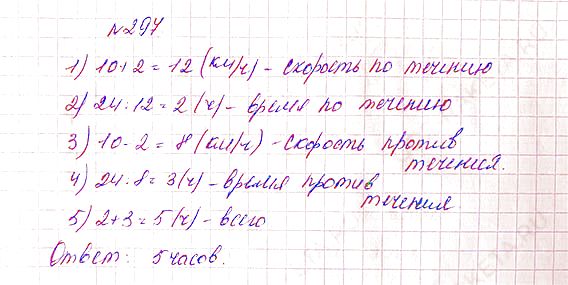 №297
1) 10+2=12 (км/ч) - скорость по течению
2) 24:12=2 (ч) - время по течению
3) 10-2=8 (км/ч) - скорость против
течения.
4) 24:8=3 (ч) - время против
течения
5) 2+3=5 (ч) - всего
Ответ: 5 часов.